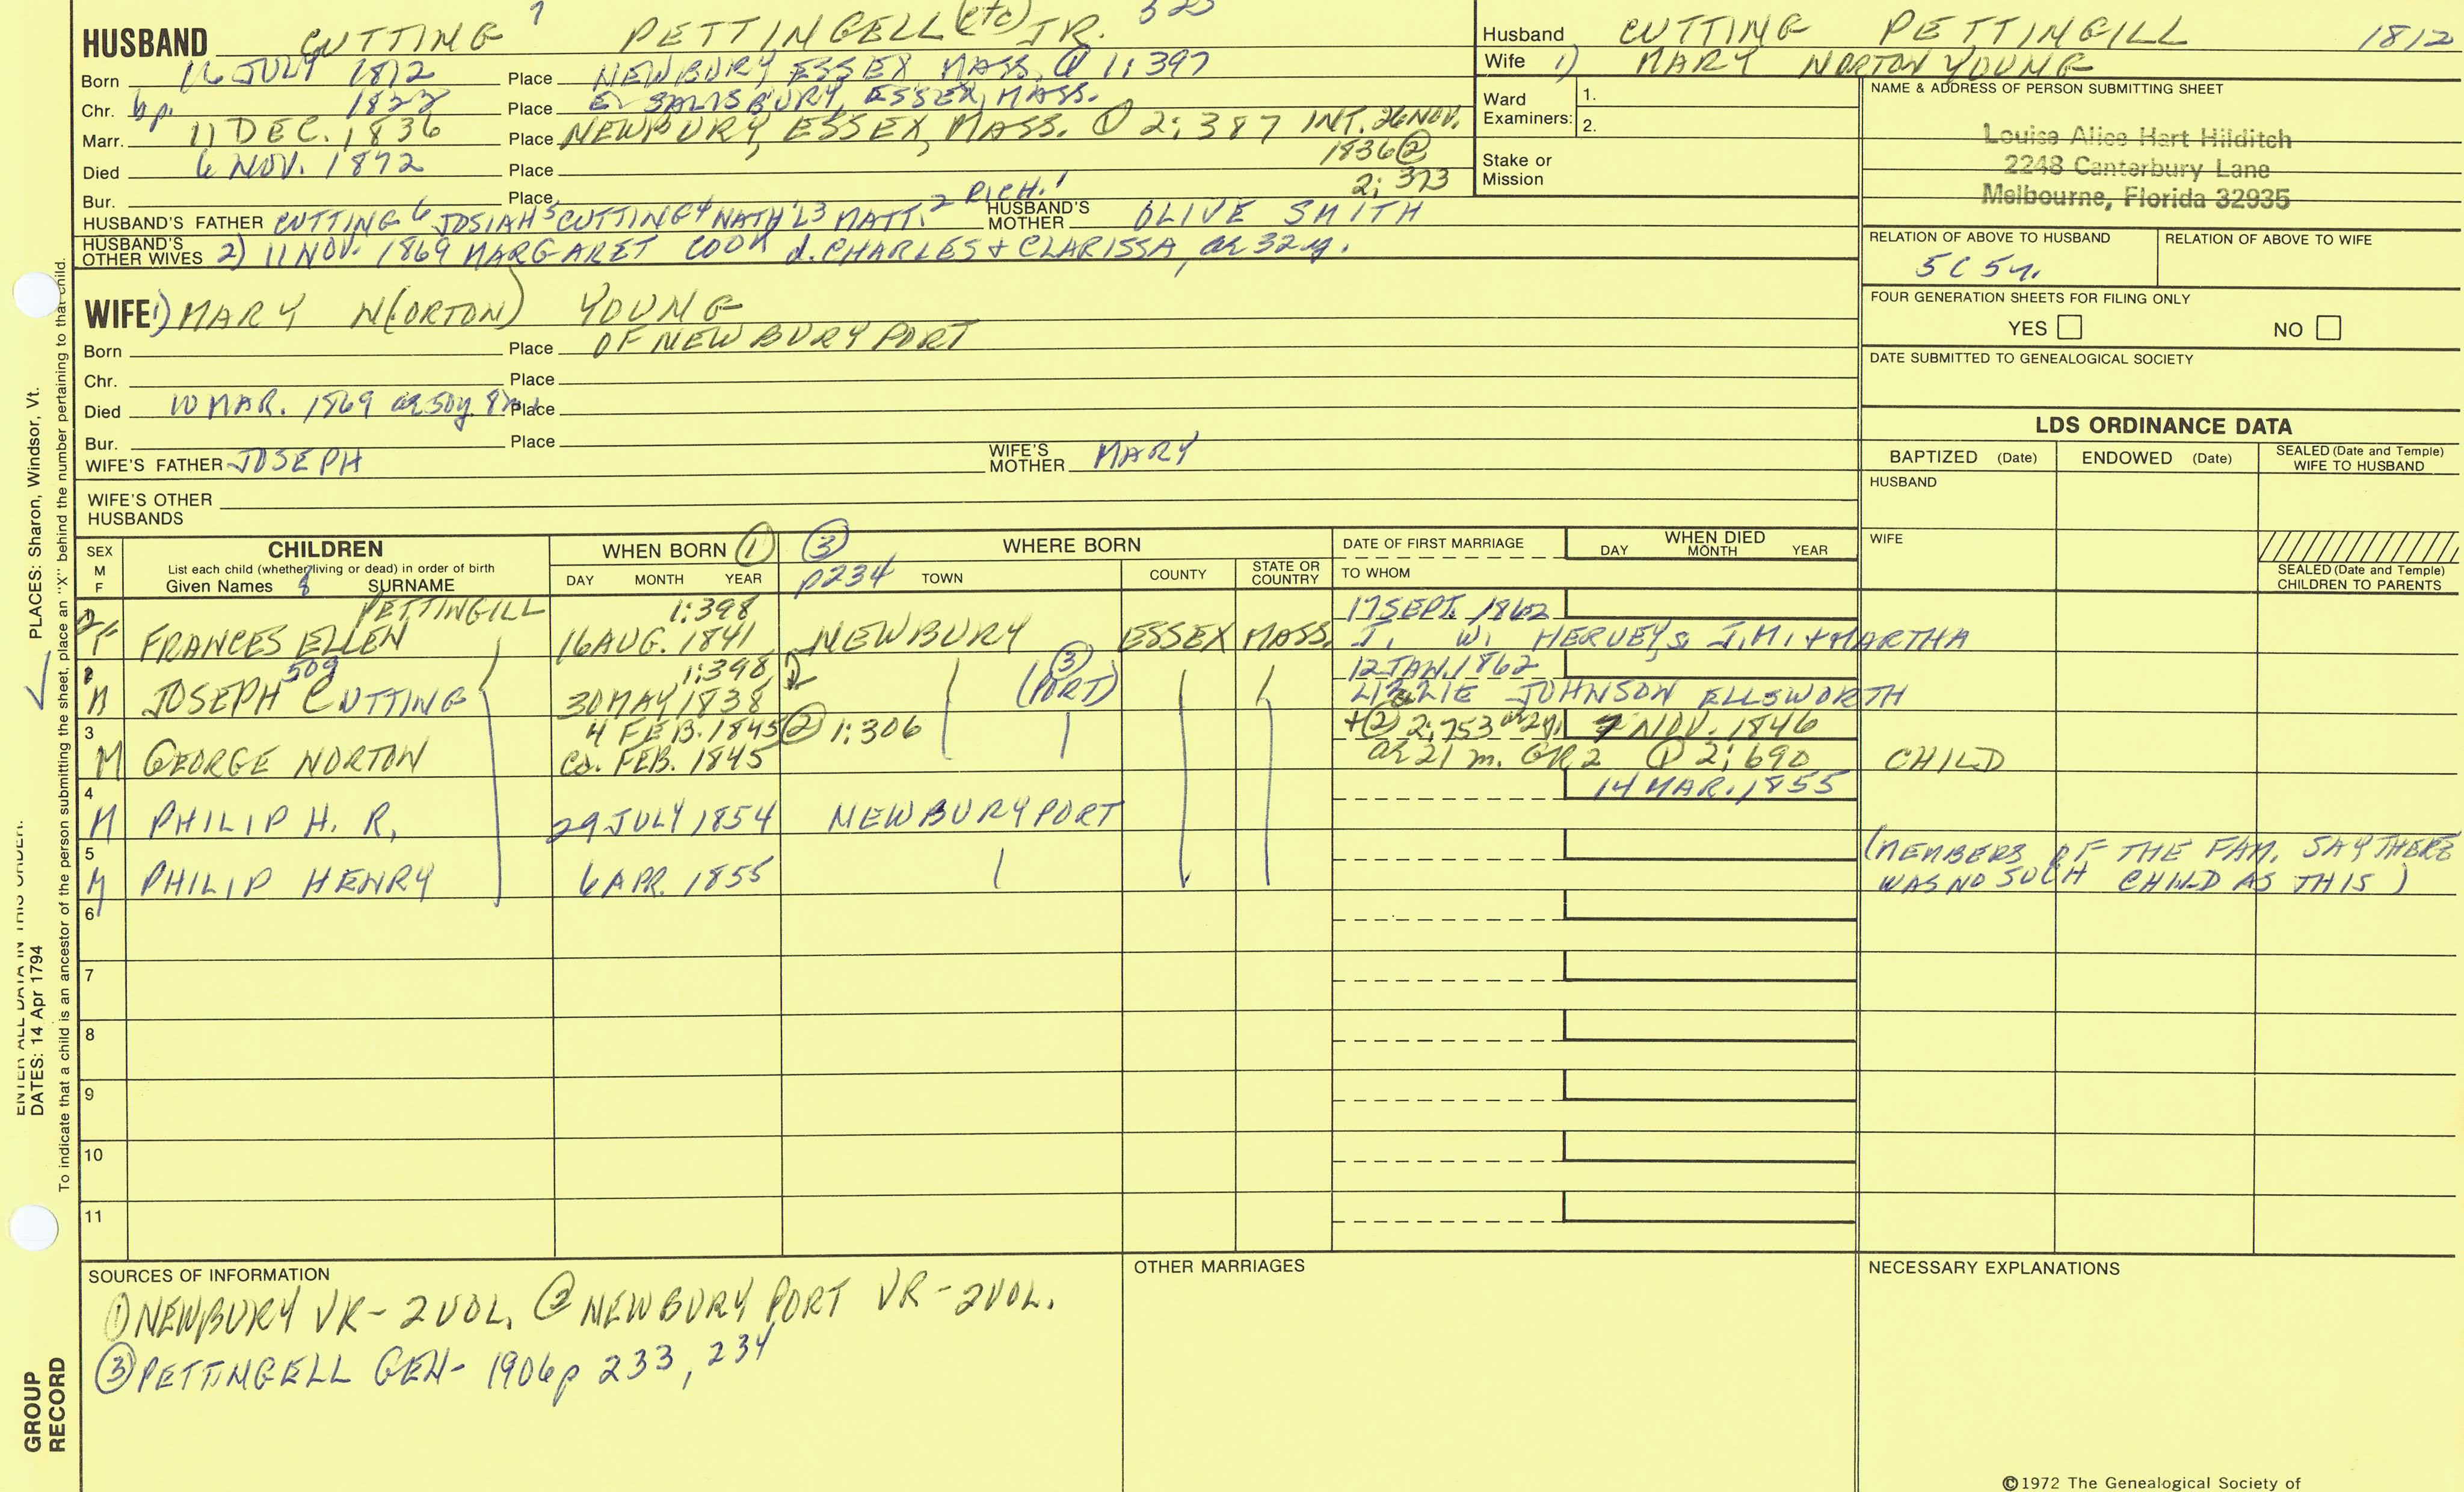 HUSBAND CUTTING 7 PETTINGELL (etc) JR. 323
Born 16 JULY 1812 Place NEWBURY, ESSEX, MASS. ① 1:397
Chr. bp. 1822 Place E. SALISBURY, ESSEX, MASS.
Marr. 11 DEC. 1836 Place NEWBURY, ESSEX, MASS. ① 2:387 INT. 26 NOV.
1836 ②
Died 6 NOV. 1872 Place 2:373
Bur. Place
HUSBAND'S FATHER CUTTING 6 JOSIAH 5 CUTTING 4 NATH'L 3 MATT. 2 RICH. 1 HUSBAND'S MOTHER OLIVE SMITH
HUSBAND'S OTHER WIVES 2) 11 NOV. 1869 MARGARET COOK d. CHARLES + CLARISSA, ae 32 y.
Husband CUTTING PETTINGILL 1812
Wife 1) MARY NORTON YOUNG
Ward Examiners: 1.
2.
Stake or Mission
NAME & ADDRESS OF PERSON SUBMITTING SHEET
Louise Alice Hart Hilditch
2248 Canterbury Lane
Melbourne, Florida 32935
RELATION OF ABOVE TO HUSBAND RELATION OF ABOVE TO WIFE
5C 5r.
FOUR GENERATION SHEETS FOR FILING ONLY
YES NO
DATE SUBMITTED TO GENEALOGICAL SOCIETY
WIFE 1) MARY N(ORTON) YOUNG
Born Place OF NEWBURYPORT
Chr. Place
Died 10 MAR. 1869 ae 50y 8m Place
Bur. Place
WIFE'S FATHER JOSEPH WIFE'S MOTHER MARY
WIFE'S OTHER HUSBANDS
LDS ORDINANCE DATA
BAPTIZED (Date) ENDOWED (Date) SEALED (Date and Temple) WIFE TO HUSBAND
HUSBAND
WIFE
SEALED (Date and Temple) CHILDREN TO PARENTS
SEX M F CHILDREN WHEN BORN ① ③ WHERE BORN DATE OF FIRST MARRIAGE WHEN DIED
List each child (whether living or dead) in order of birth
Given Names 8 SURNAME DAY MONTH YEAR p234 TOWN COUNTY STATE OR COUNTRY TO WHOM DAY MONTH YEAR
PETTINGILL 1:398 17 SEPT. 1862
F FRANCES ELLEN 16 AUG. 1841 NEWBURY ESSEX MASS. J. W. HERVEY s. J. M. + MARTHA
2 509 1:398 ③ 12 JAN. 1862
M JOSEPH CUTTING 30 MAY 1838 (PORT) LIZZIE JOHNSON ELLSWORTH
3 4 FEB. 1845 ② 1:306 + ② 2:753 ae 2y. 7 NOV. 1846
M GEORGE NORTON ca. FEB. 1845 ae 21 m. GR2 ① 2:690 CHILD
4 14 MAR. 1855
M PHILIP H. R. 29 JULY 1854 NEWBURYPORT
5 (MEMBERS OF THE FAM. SAY THERE
M PHILIP HENRY 6 APR. 1855 WAS NO SUCH CHILD AS THIS)
6
7
8
9
10
11
SOURCES OF INFORMATION
① NEWBURY VR - 2 VOL. ② NEWBURYPORT VR - 2 VOL.
③ PETTINGELL GEN - 1906 p 233, 234
OTHER MARRIAGES
NECESSARY EXPLANATIONS
©1972 The Genealogical Society of
ENTER ALL DATA IN THIS ORDER:
DATES: 14 Apr 1794 PLACES: Sharon, Windsor, Vt.
To indicate that a child is an ancestor of the person submitting the sheet, place an "X" behind the number pertaining to that child.
GROUP RECORD